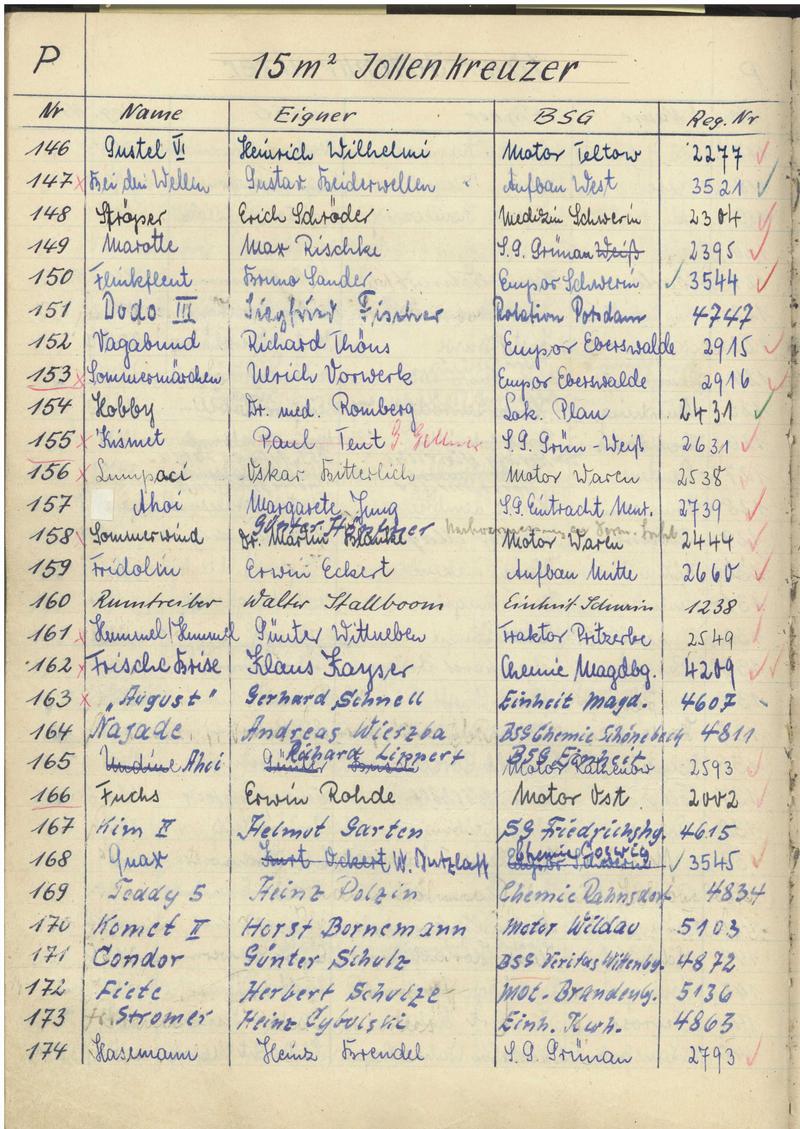 P 15 m² Jollenkreuzer
Nr Name Eigner BSG Reg. Nr
146 Gustel VI Heinrich Wilhelmi Motor Teltow 2277
147 x Bei den Wellen Gustav Beiderwellen Aufbau West 3521
148 Ströper Erich Schröder Medizin Schwerin 2304
149 Marotte Max Rischke S.G. Grünau Weiß 2395
150 Flinkfleut Bruno Sander Empor Schwerin 3544
151 Dodo III Siegfried Fischer Rotation Potsdam 4747
152 Vagabund Richard Thöns Empor Eberswalde 2915
153 x Sommermärchen Ulrich Vorwerk Empor Eberswalde 2916
154 Hobby Dr. med. Romberg Lok. Plan 2431
155 x Kismet Paul Tent G. S.G. Grün-Weiß 2631
156 x Lumpaci Oskar Bitterlich Motor Waren 2538
157 Ahoi Margarete Jung S.G. Eintracht 2739
Günter
158 x Sommerwind Dr. Martin Motor Waren 2444
159 Fridolin Erwin Eckert Aufbau Mitte 2660
160 Rumtreiber Walter Stallboom Einheit Schwerin 1238
161 x Hummel/Hummel Günter Wittneben Traktor Pritzerbe 2549
162 x Frische Brise Klaus Kayser Chemie Magdbg. 4209
163 x "August" Gerhard Schnell Einheit Magd. 4607
164 Najade Andreas Wierzba BSG Chemie Schönebeck 4811
Richard Lippert BSG Einheit
165 Undine Ahoi Günter Motor Rathenow 2593
166 Fuchs Erwin Rohde Motor Ost 2002
167 Kim II Helmut Garten SG Friedrichshg. 4615
Chemie Coswig
168 Quax Kurt Ockert W. Butzlaff Empor Schwerin 3545
169 Teddy 5 Heinz Polzin Chemie Rahnsdorf 4834
170 Komet II Horst Bornemann Motor Wildau 5103
171 Condor Günter Schulz BSG Veritas Wittenbg. 4872
172 Fiete Herbert Schulze Mot. Brandenbg. 5136
173 Stromer Heinz Cybulski Einh. Kwh. 4863
174 Hasemann Heinz Brendel S.G. Grünau 2793